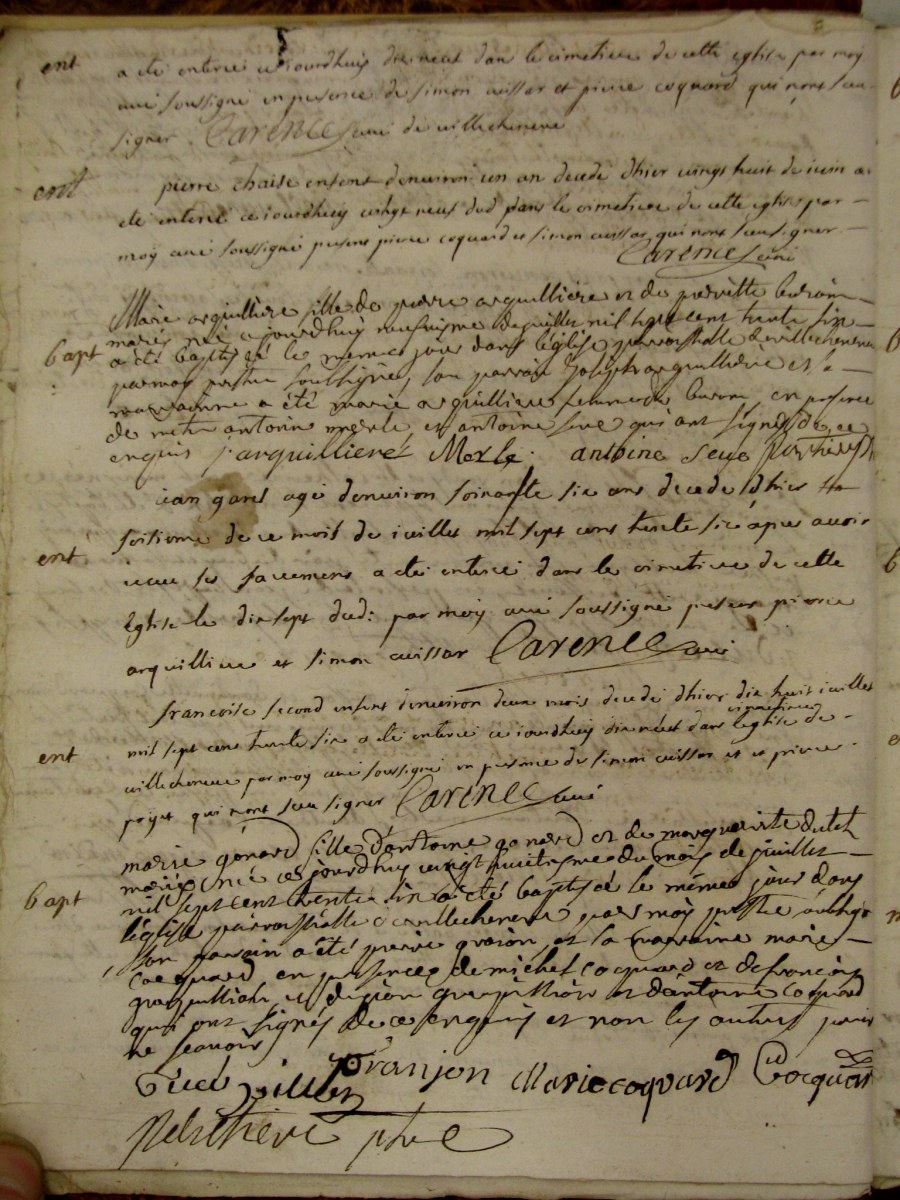 ent
a ete enterré ce iourdhuy dixneuf dans le cimetiere de cette eglise par moy
curé soussigné en presence de simon cuissar et pierre coquard qui n'ont sceu
signer Clarence curé de villechenene
ent
pierre chaise enfant d'environ un an decedé dhier vingt huit de iuin a
eté enteré ce iourdhuy vingt neuf dud dans le cimetiere de cette eglise par
moy curé soussigné presens pierre coquard et simon cuissar qui n'ont sceu signer
Clarence curé
Marie arquilliere fille de pierre arquilliere et de pierrette
bapt
mariés née ajourdhuy neufvisme de juillet mil sept cent trente six
a été baptisée le meme jour dans l'église parroissialle de villechenene
par moy prestre soubsigné, son parrain Joseph arquilliere et la
marraine a été marie arquilliere femme de en presence
de metre antoine merle, et antoine qui ont signés de ce
enquis j arquilliere Merle. antoine
iean garel agé denviron soixante six ans decedé dhier
ent
seitieme de ce mois de iuillet mil sept cens trente six apres avoir
receu ses sacremens a eté enterré dans le cimetiere de cette
Eglise le dix sept dud: par moy curé soussigné presens pierre
arquilliere et simon cuissar Clarence curé
francoise second enfant denviron deux mois decedé dhier dix huit iuillet
ent
mil sept cens trente six a eté enterrée ce iourdhuy dixneuf dans l'eglise cimetiere de
villechenene par moy curé soussigné en presence de simon cuissar et de pierre
poyet qui n'ont sceu signer Clarence curé
marie gonard fille d'antoine gonard et de marguerite
mariés, née ce jourdhuy vingt huitiesme du mois de juillet
bapt
mil sept cent trente six a été baptisée le même jour dans
l'église parroissialle de villechenene par moy prestre soubsigné
son parrain a été pierre et la marraine marie
coequard en presence de michel coquard et de francois
et de et d'antoine coquard
qui ont signés de ce enquis et non les autres pour
ne scavoir
franjon Marie coquard Cocquard
ptre